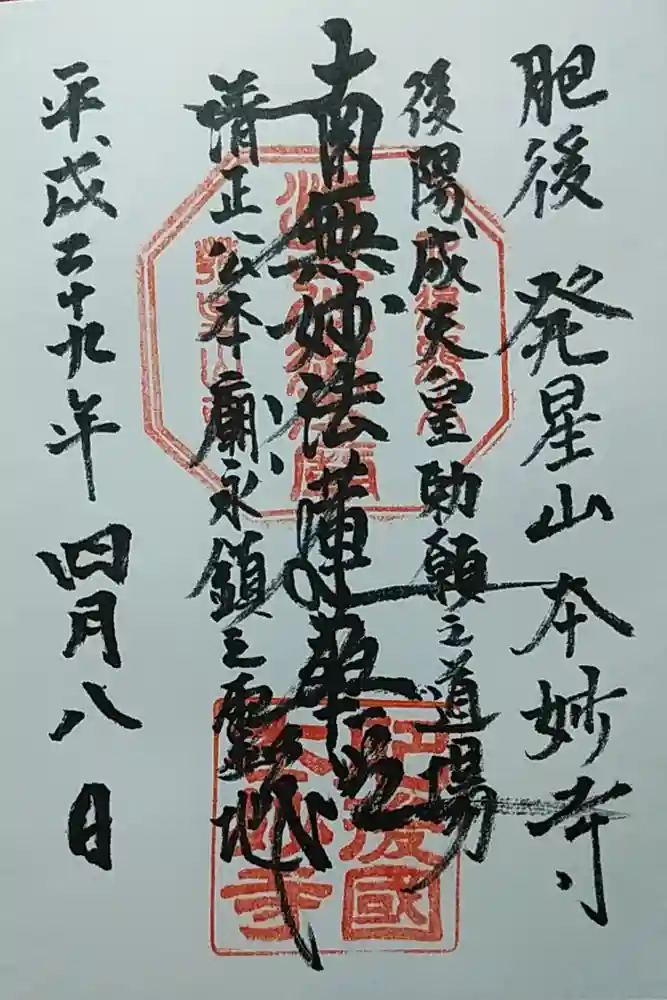 肥後 発星山 本妙寺
後陽成天皇勅願之道場
南無妙法蓮華経
清正公本廟永鎮之霊地
平成二十九年 四月八日
肥後國
本妙寺